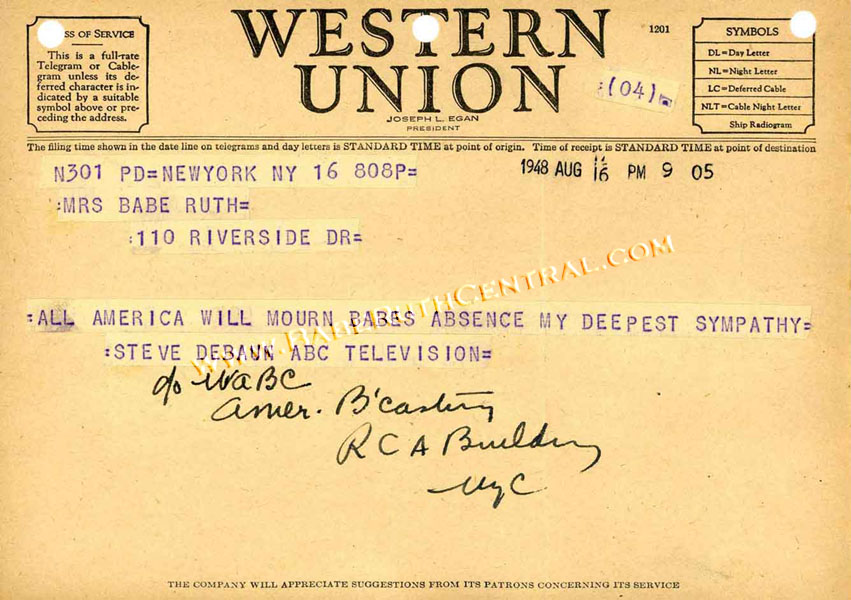 WESTERN
UNION
1201
JOSEPH L. EGAN
PRESIDENT
SS OF SERVICE
This is a full-rate
Telegram or Cable-
gram unless its de-
ferred character is in-
dicated by a suitable
symbol above or pre-
ceding the address.
:(04)
SYMBOLS
DL=Day Letter
NL=Night Letter
LC=Deferred Cable
NLT=Cable Night Letter
Ship Radiogram
The filing time shown in the date line on telegrams and day letters is STANDARD TIME at point of origin. Time of receipt is STANDARD TIME at point of destination
N301 PD=NEWYORK NY 16 808P=
1948 AUG 16 PM 9 05
:MRS BABE RUTH=
:110 RIVERSIDE DR=
:ALL AMERICA WILL MOURN BABES ABSENCE MY DEEPEST SYMPATHY=
:STEVE DEBAUN ABC TELEVISION=
WWW.BABERUTHCENTRAL.COM
c/o WABC
Amer. B'casting
RCA Building
NYC
THE COMPANY WILL APPRECIATE SUGGESTIONS FROM ITS PATRONS CONCERNING ITS SERVICE